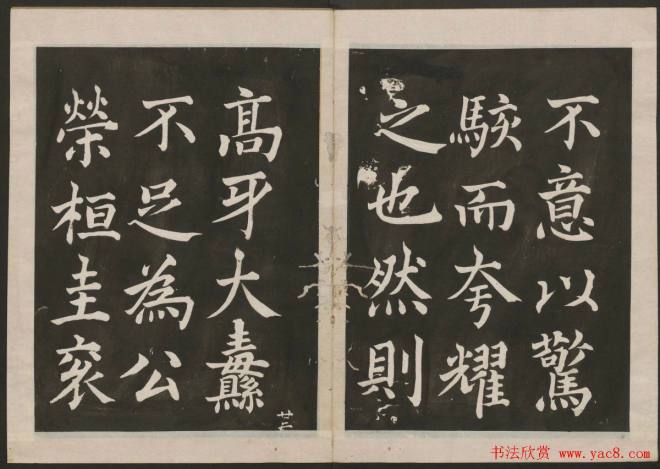 不意以驚
駭而夸耀
之也然則
高牙大纛
不足為公
榮桓圭衮
廿三
书法欣赏 www.yac8.com